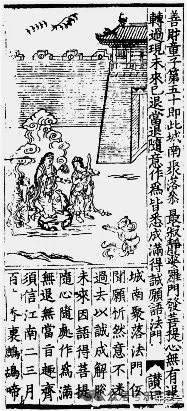 善財童子第五十即此城南聚落參最寂靜婆羅門發菩提心無有退
轉過現未來已退當退隨意作為皆悉成滿得誠願語法門 讚
城南聚落法門
聞願忻然意不迷
過去以誠成解脫
未來因語得菩提
隨心隨處作為滿
無退無當趣齊
須信江南二三月
百裏鷓鴣啼